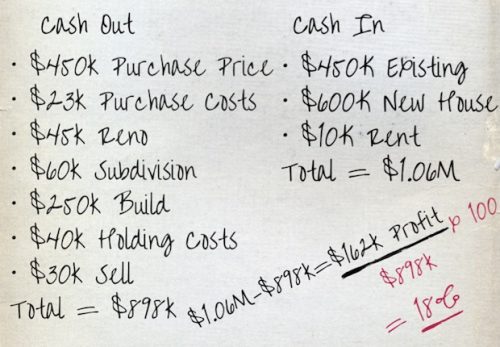 Cash Out
· $450k Purchase Price
· $23k Purchase Costs
· $45k Reno
· $60k Subdivision
· $250k Build
· $40k Holding Costs
· $30k Sell
Total = $898k
Cash In
· $450K Existing
· $600K New House
· $10K Rent
Total = $1.06M
$1.06M-$898k=$162k Profit x 100
$898k
= 18%